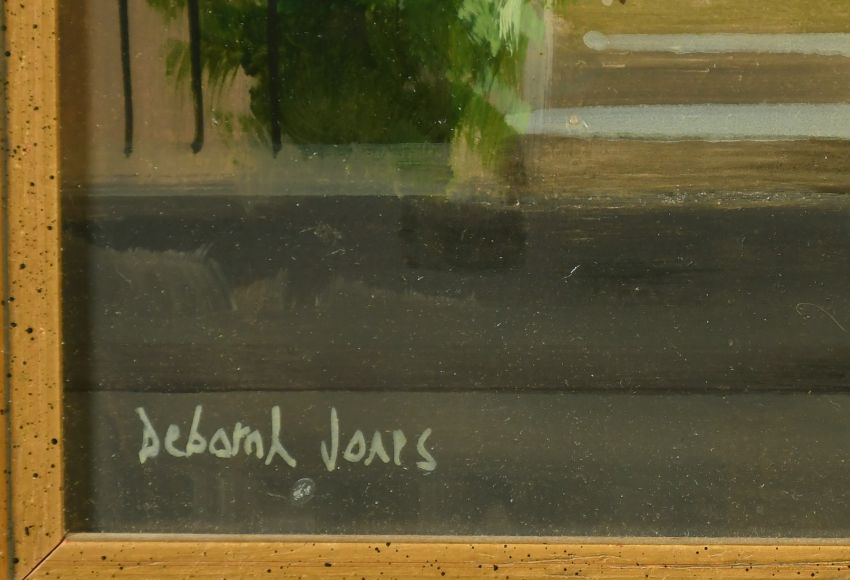 Deborah Jones